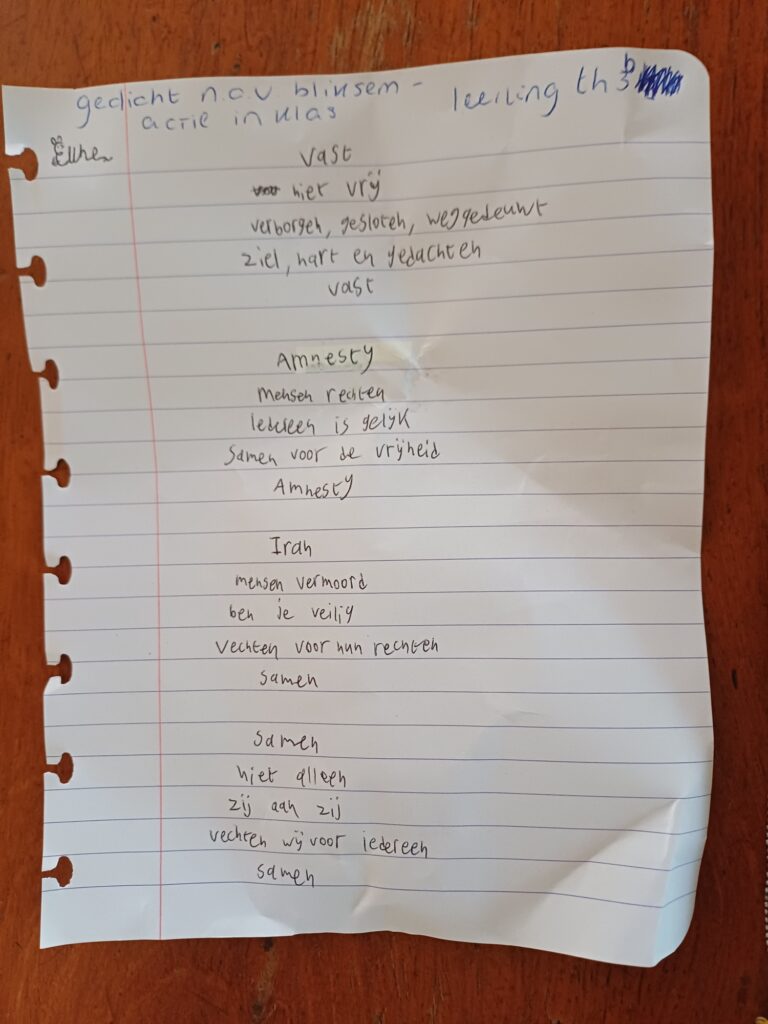 gedicht n.a.v. bliksem - leerling th 3b
actie in klas
vast
niet vrij
verborgen, gesloten, weggeduwt
ziel, hart en gedachten
vast
Amnesty
mensen rechten
Iedereen is gelijk
Samen voor de vrijheid
Amnesty
Iran
mensen vermoord
ben je veilig
Vechten voor hun rechten
Samen
Samen
niet alleen
zij aan zij
vechten wij voor iedereen
samen